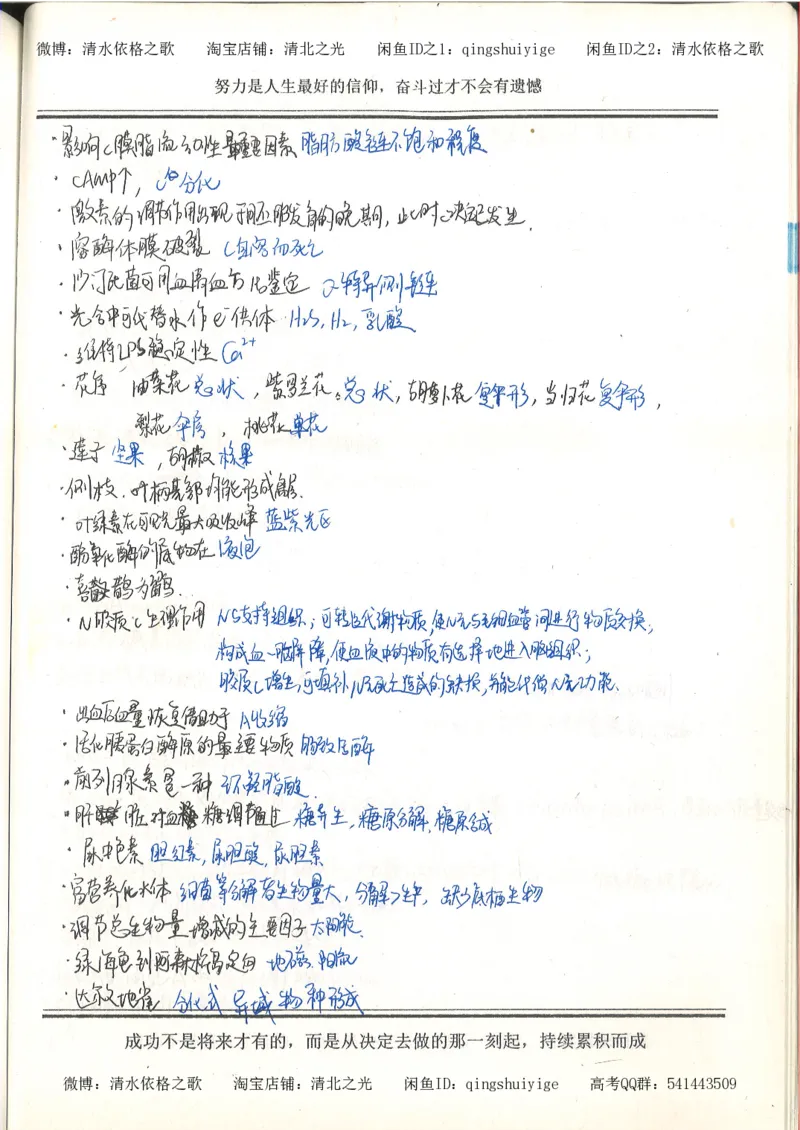 微博：清水依格之歌 淘宝店铺：清北之光 闲鱼ID之1：qingshuiyige 闲鱼ID之2：清水依格之歌
努力是人生最好的信仰，奋斗过才不会有遗憾
·影响c膜脂流动性最重要因素 脂肪酸链不饱和程度
·cAMP↑，分化
·激素的调节作用出现于胚胎发育的晚期，此时决定已发生．
·溶酶体膜破裂 C自溶而死亡
·沙门氏菌可用血清血方法鉴定 O-特异侧链
·光合中可代替水作e⁻供体 H2S，H2，乳酸
·维持LPS稳定性 Ca²⁺
·花序 油菜花总状，紫罗兰花：总状，胡萝卜花复伞形，当归花复伞形，
梨花伞房，桃花单花
·莲子 坚果，胡椒 核果
·侧枝．叶柄基部均能形成离层．
·叶绿素在可见光最大吸收峰 蓝紫光区
·酚氧化酶的底物在液泡
·喜鹊为留鸟．
·N胶质c生理作用 NS支持组织；可转运代谢物质，使N元与毛细血管间进行物质交换；
构成血-脑屏障，使血液中的物质有选择地进入脑组织；
胶质c增生，可填补N元死亡造成的缺损，并能代偿N元功能．
·出血后血量恢复借助于A收缩
·活化胰蛋白酶原的最重要物质 肠致活酶
·前列腺素是一种 环羟脂酸．
·肝脏对血糖调节 糖异生，糖原分解，糖原合成
·尿中色素 胆红素，尿胆酸，尿胆素
·富营养化水体 细菌等分解者生物量大，分解>生产，缺少底栖生物
·调节总生物量增减的主要因子 太阳能．
·绿海龟到阿森松岛定向 地磁．阳光
·达尔文地雀 分化式 异域物种形成
成功不是将来才有的，而是从决定去做的那一刻起，持续累积而成
微博：清水依格之歌 淘宝店铺：清北之光 闲鱼ID：qingshuiyige 高考QQ群：541443509